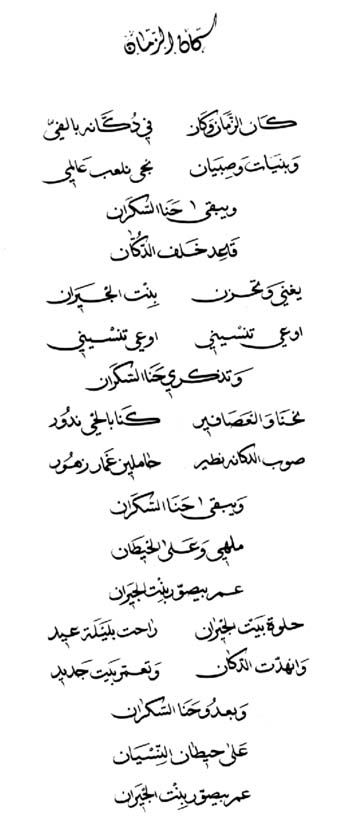 كان الزمان
كان الزمان وكان في دكانة بالفيّ
وبنيات وصبيان نجي نلعب عالمي
ويبقى حنا السكران
قاعد خلف الدكان
يغني وتحزن بنت الجيران
اوعي تنسيني اوعي تنسيني
وتذكري حنا السكران
نحنا والعصافير كنا بالحي ندور
صوب الدكانه نطير حاملين غمار زهور
ويبقى حنا السكران
ملهي وعلى الحيطان
عم بيصوّر بنت الجيران
حلوة بيت الجيران راحت بليلة عيد
وانهدّت الدكان وتعمّر بيت جديد
وبعدو حنا السكران
على حيطان النسيان
عم بيصوّر بنت الجيران